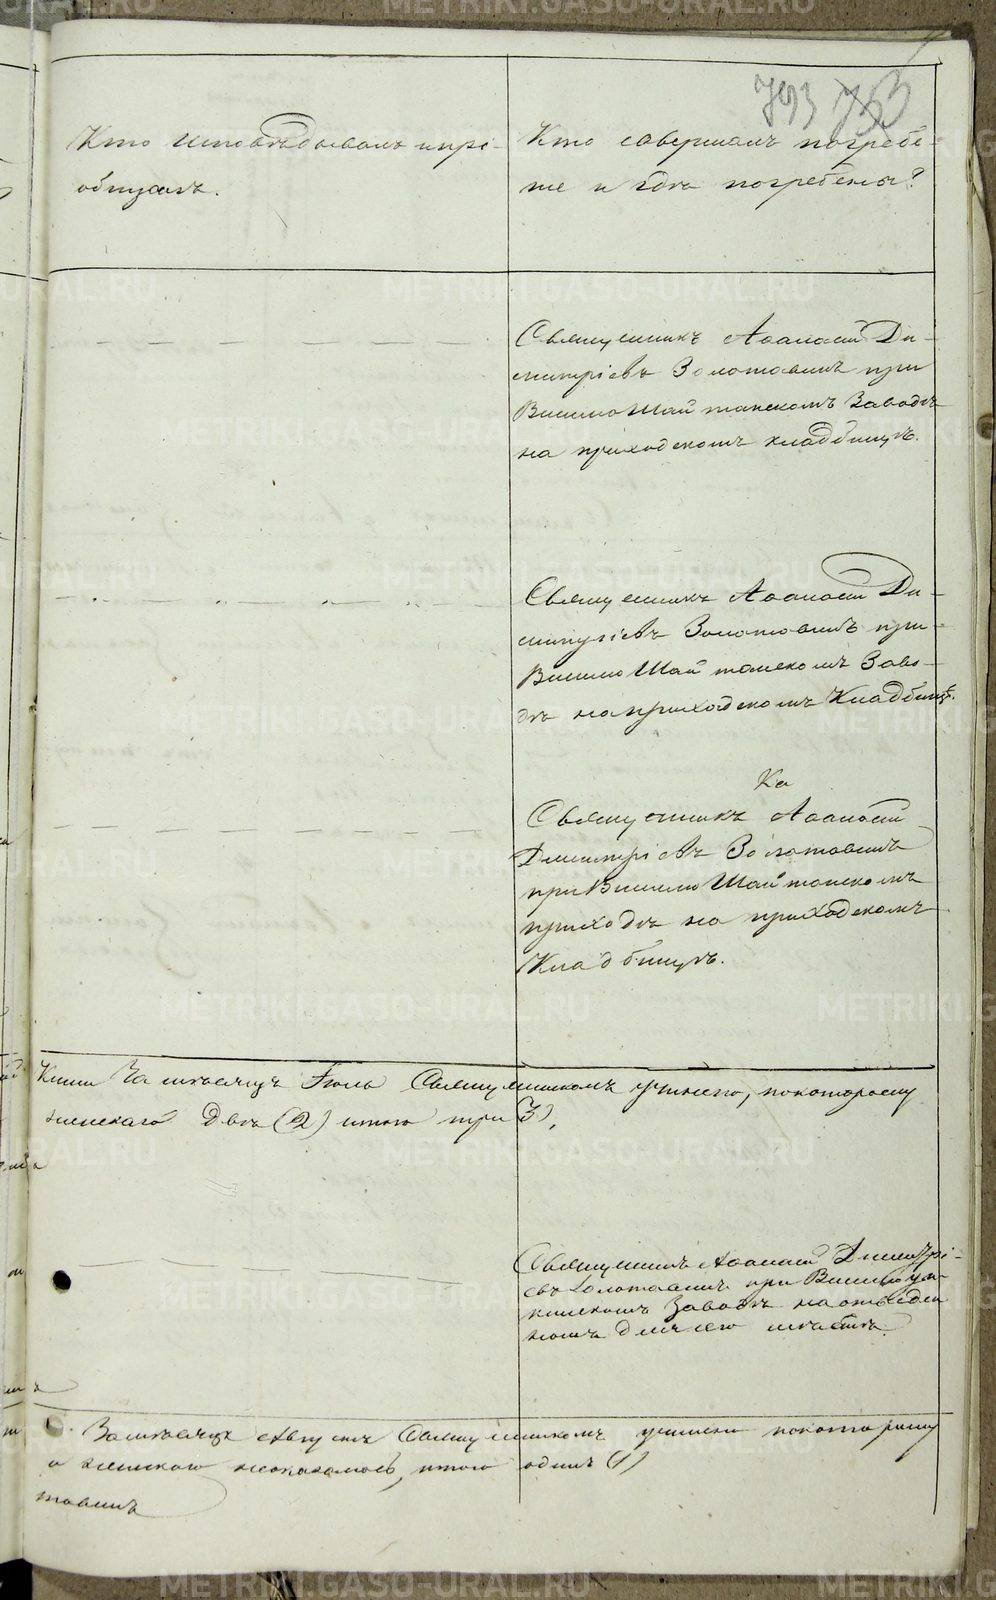 793
Кто исповѣдывалъ и прі-
общалъ.
Кто совершалъ погребе-
ніе и гдѣ погребены?
Священникъ Аѳанасій Ди-
митріевъ Золотавинъ при
ВисимоШайтанскомъ Заводѣ
на приходскомъ кладбищѣ.
Священникъ Аѳанасій Ди-
митріевъ Золотавинъ при
ВисимоШайтанскомъ Заво-
дѣ на приходскомъ Кладбищѣ.
Ка
Священникъ Аѳанасій
Димитріевъ Золотавинъ
при ВисимоШайтанскомъ
приходѣ на приходскомъ
Кладбищѣ.
За мѣсяцъ Іюль Священникомъ учинено, по которому
женскаго Двѣ (2) итого три (3),
Священникъ Аѳанасій Димитрі-
евъ Золотавинъ при Висимоут-
кинскомъ Заводѣ на отведен
номъ для сего мѣстѣ.
За мѣсяцъ Августъ Священникомъ учинено по которому
а женскаго неоказалось, итого одинъ (1)
тавинъ
METRIKI.GASO-URAL.RU